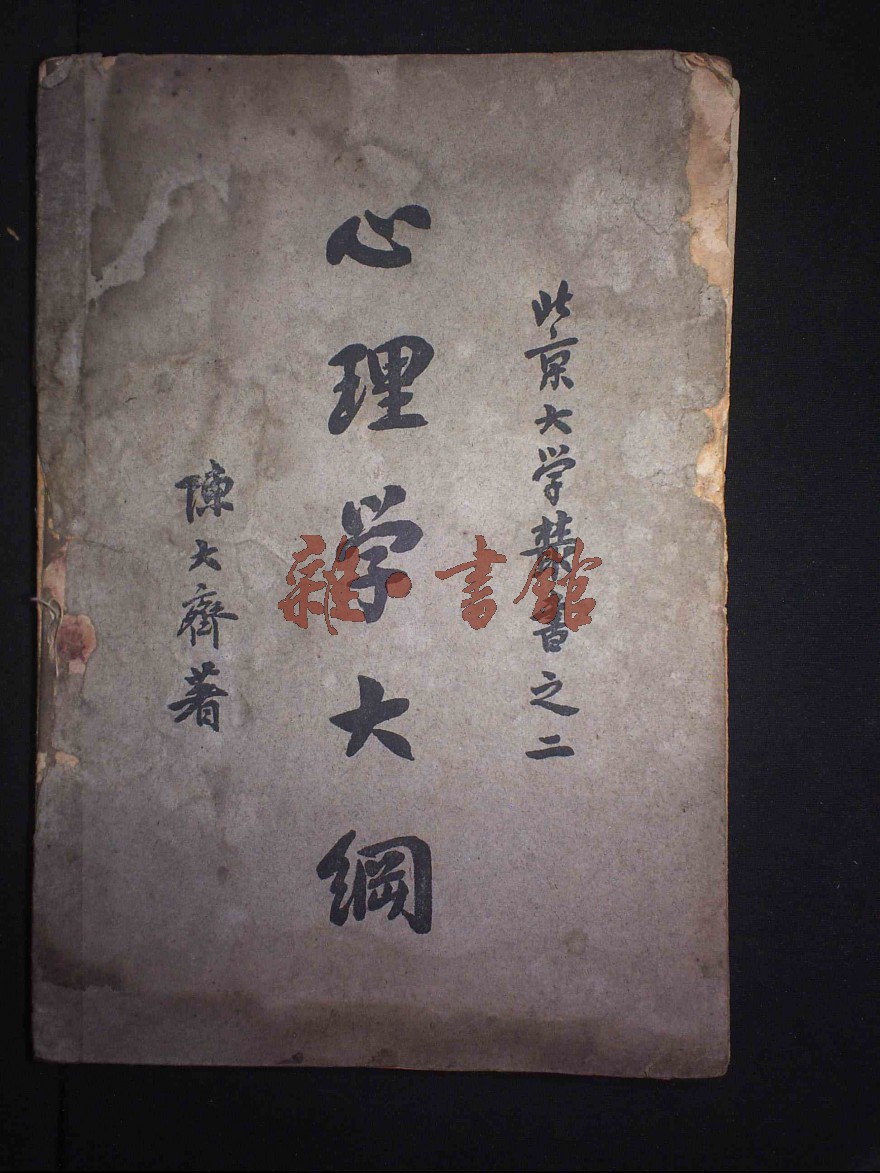 北京大学叢書之二
心理学大綱
陳大齊著
雜·書館